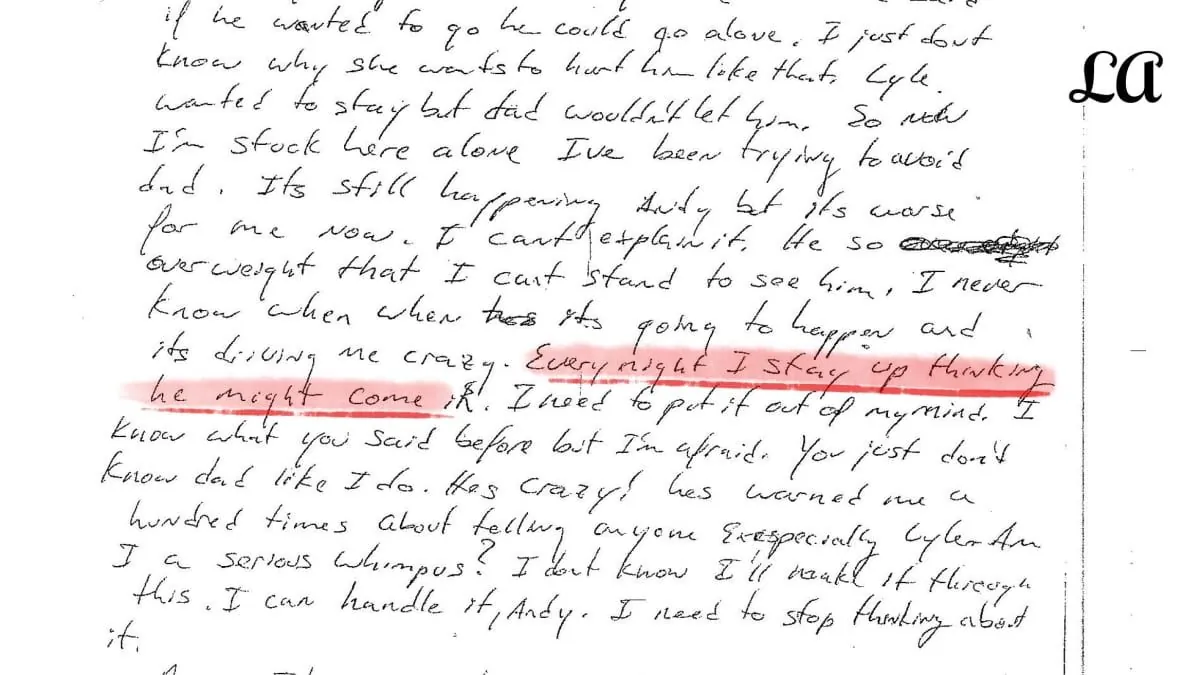 if he wanted to go he could go alone. I just dont
know why she wants to hurt him like that. Lyle
wanted to stay but dad wouldn't let him. So now
I'm stuck here alone I've been trying to avoid
dad. Its still happening Andy but its worse
for me now. I cant explain it. He so
overweight that I cant stand to see him. I never
know when when its going to happen and
its driving me crazy. Every night I stay up thinking
he might come in. I need to put it out of my mind. I
know what you said before but I'm afraid. You just don't
know dad like I do. Hes crazy! hes warned me a
hundred times about telling anyone Exespecially Lyle. Am
I a serious whimpus? I dont know I'll make it through
this. I can handle it, Andy. I need to stop thinking about
it.
LA